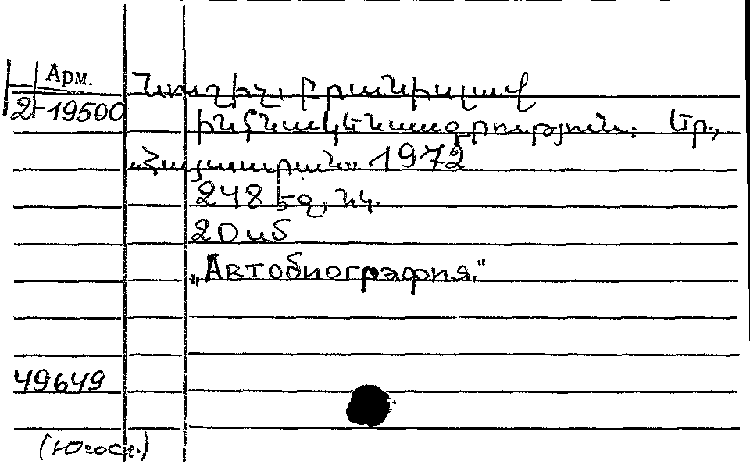 Арм.
2-19500
Նուշիչ, Բրանիսլավ
Ինքնակենսագրություն. Եր.,
«Հայաստան» 1972
248 էջ, նկ.
20 սմ
„Автобиография."
49649
(Югосл.)